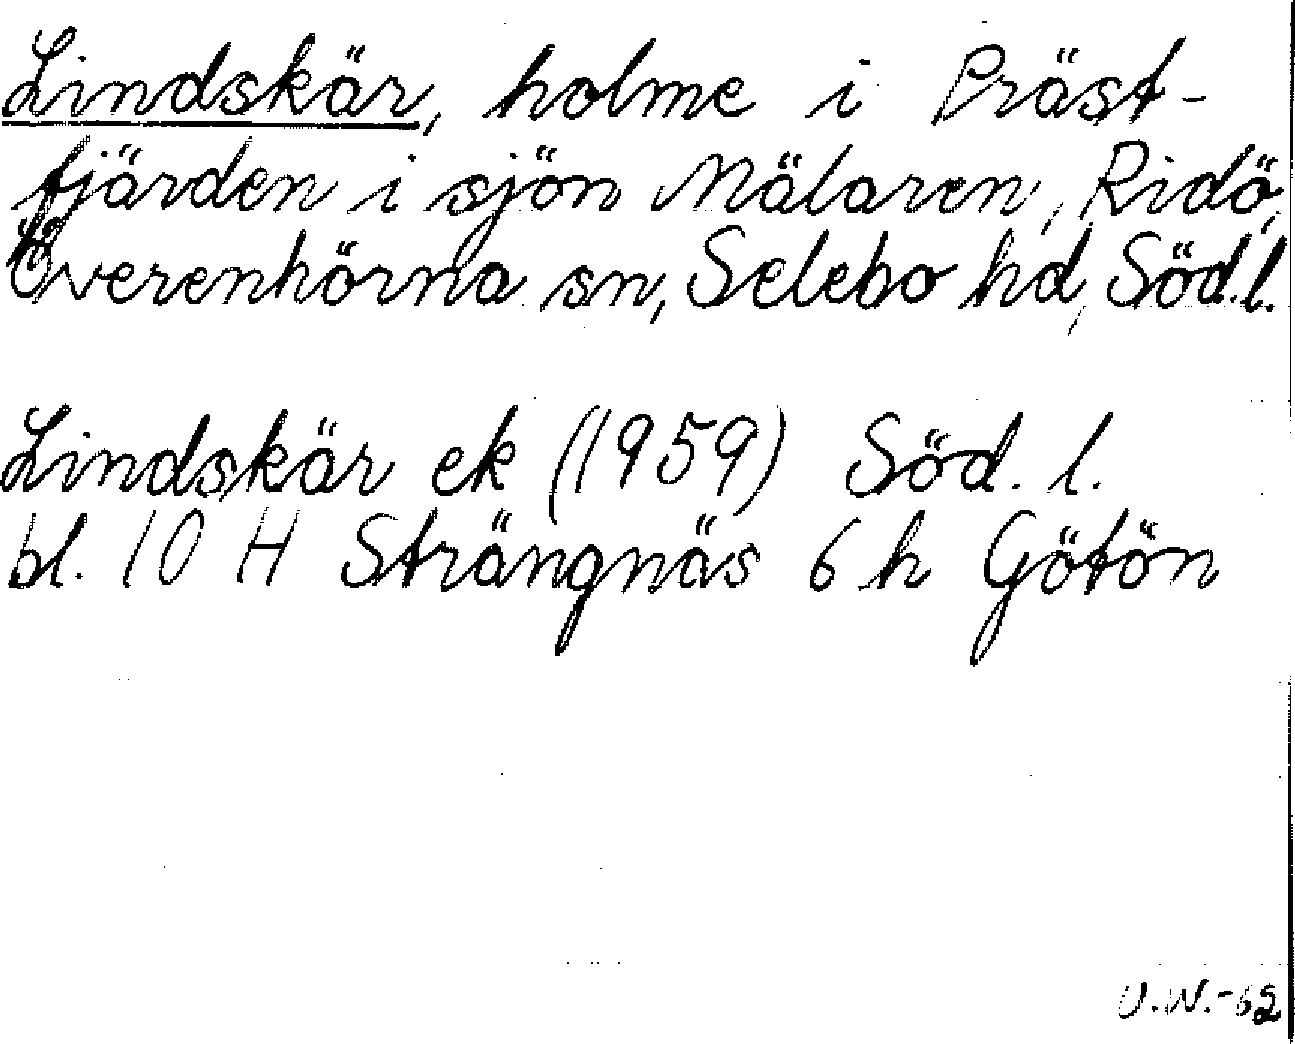 Lindskär, holme i Präst-
fjärden i sjön Mälaren, Ridö,
Överenhörna sn, Selebo hd, Söd.l.
Lindskär ek (1959) Söd. l.
bl. 10 H Strängnäs 6 h Götön
U.W.-62